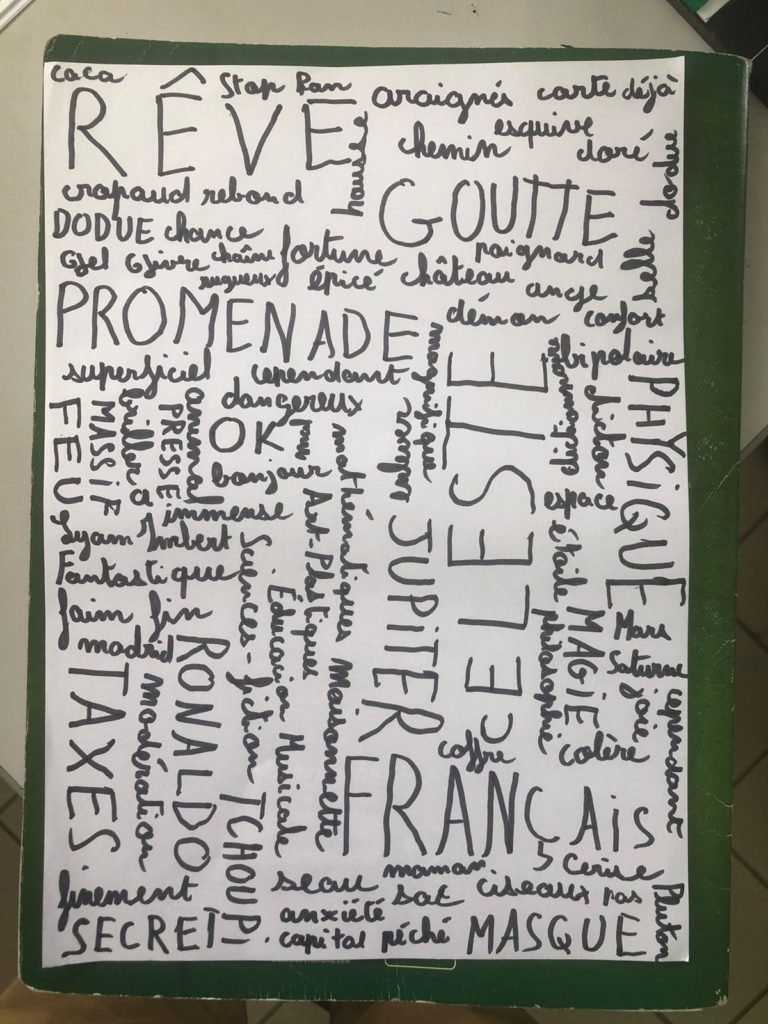 caca
Stop Pan
RÊVE
araignés carte déjà
esquive
chemin doré
dodue
housse
crapaud rebond
GOUTTE
DODUE chance
poignard
selle
Gel Givre chaîne fortune
rugueux épicé château ange
PROMENADE
démon confort
bipolaire
superficiel cependant
magnifique
dangereux
CELESTE
dicton
PHYSIQUE
FEU
MASSIF
briller à
PRESSE
animal
OK
pus
bonjour
mathématiques
espace
immense
Lyam Imbert
Sciences-fiction
Art-Plastiques
JUPITER
étoile
Fantastique
Éducacion Musicale
faim fin
madrid
RONALDO
Maisonnette
philosophie
MAGIE
Mars
Saturne
joie
cependant
TAXES
modération
TCHOUPI
coffre
colère
FRANÇAIS
5 Cerise
maman
finement
seau
sac
ciseaux pas
Pluton
anxiété
SECRET
capital péché
MASQUE